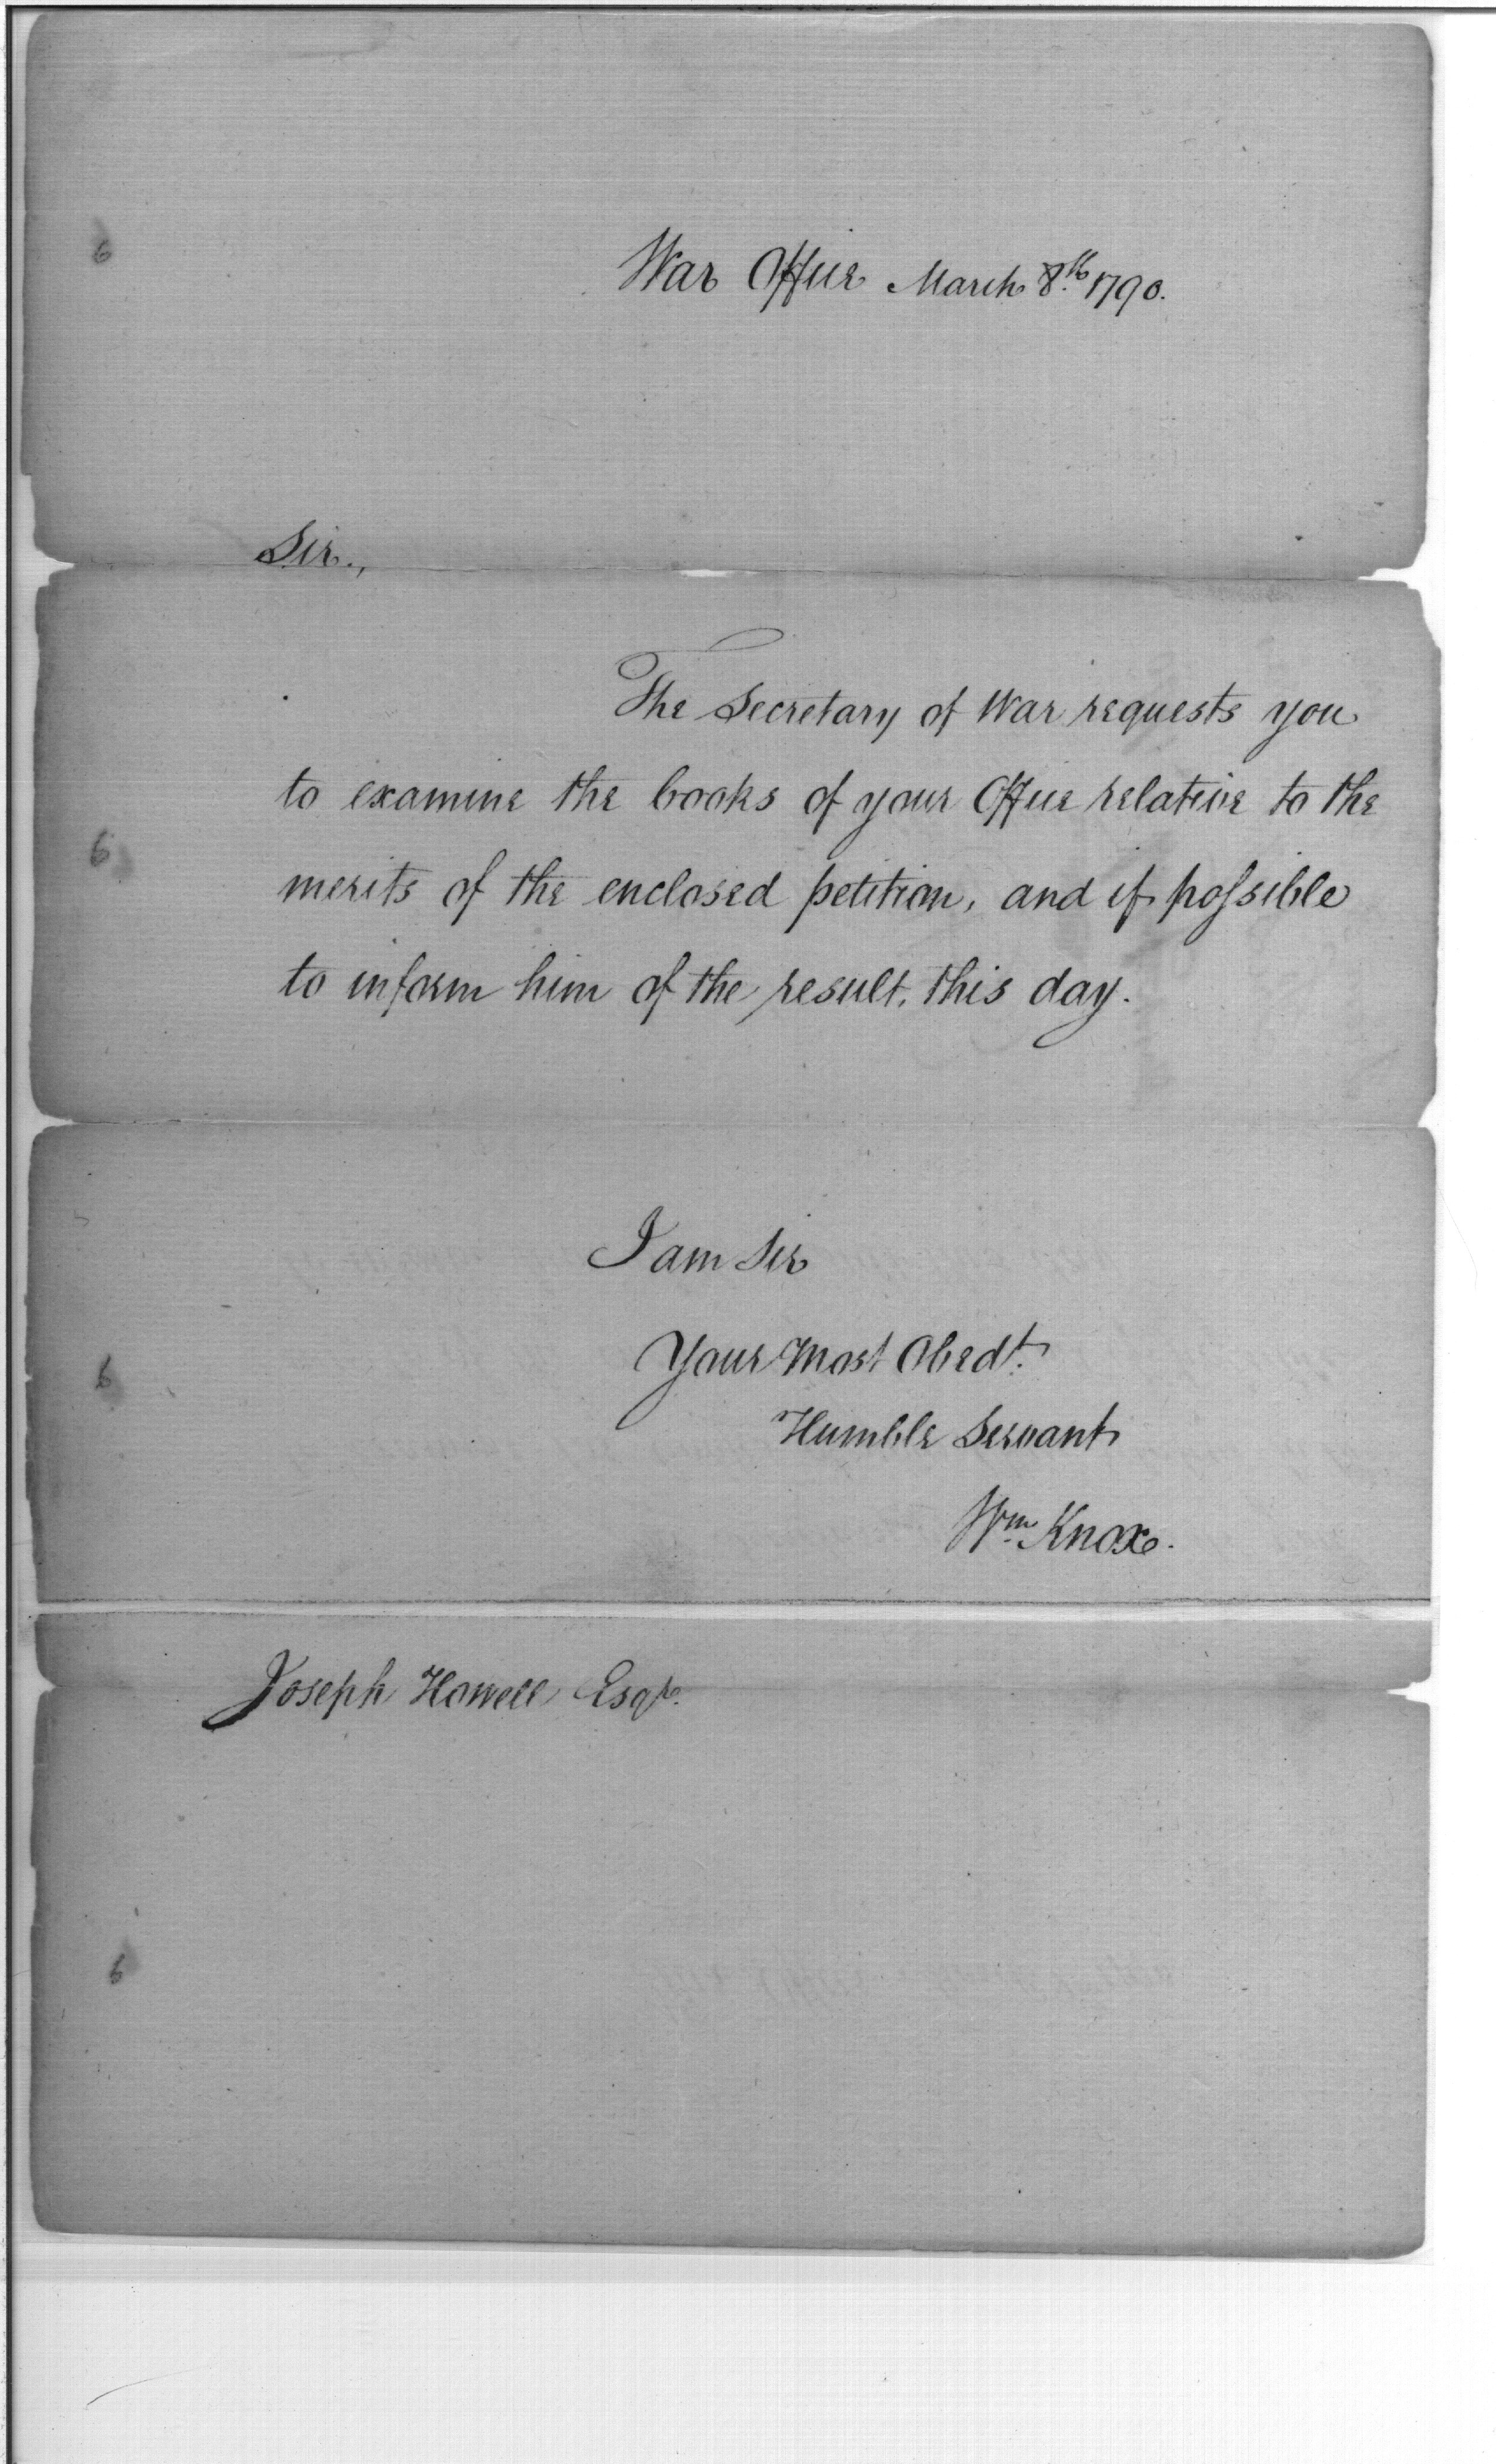 War Office March 8th 1790.
Sir.,
The Secretary of War requests you
to examine the books of your Office relative to the
merits of the enclosed petition, and if poſsible
to inform him of the result, this day.
I am Sir
Your Most Obedt.
Humble Servant
Wm Knox.
Joseph Howell Esqr.
6
6
6
6